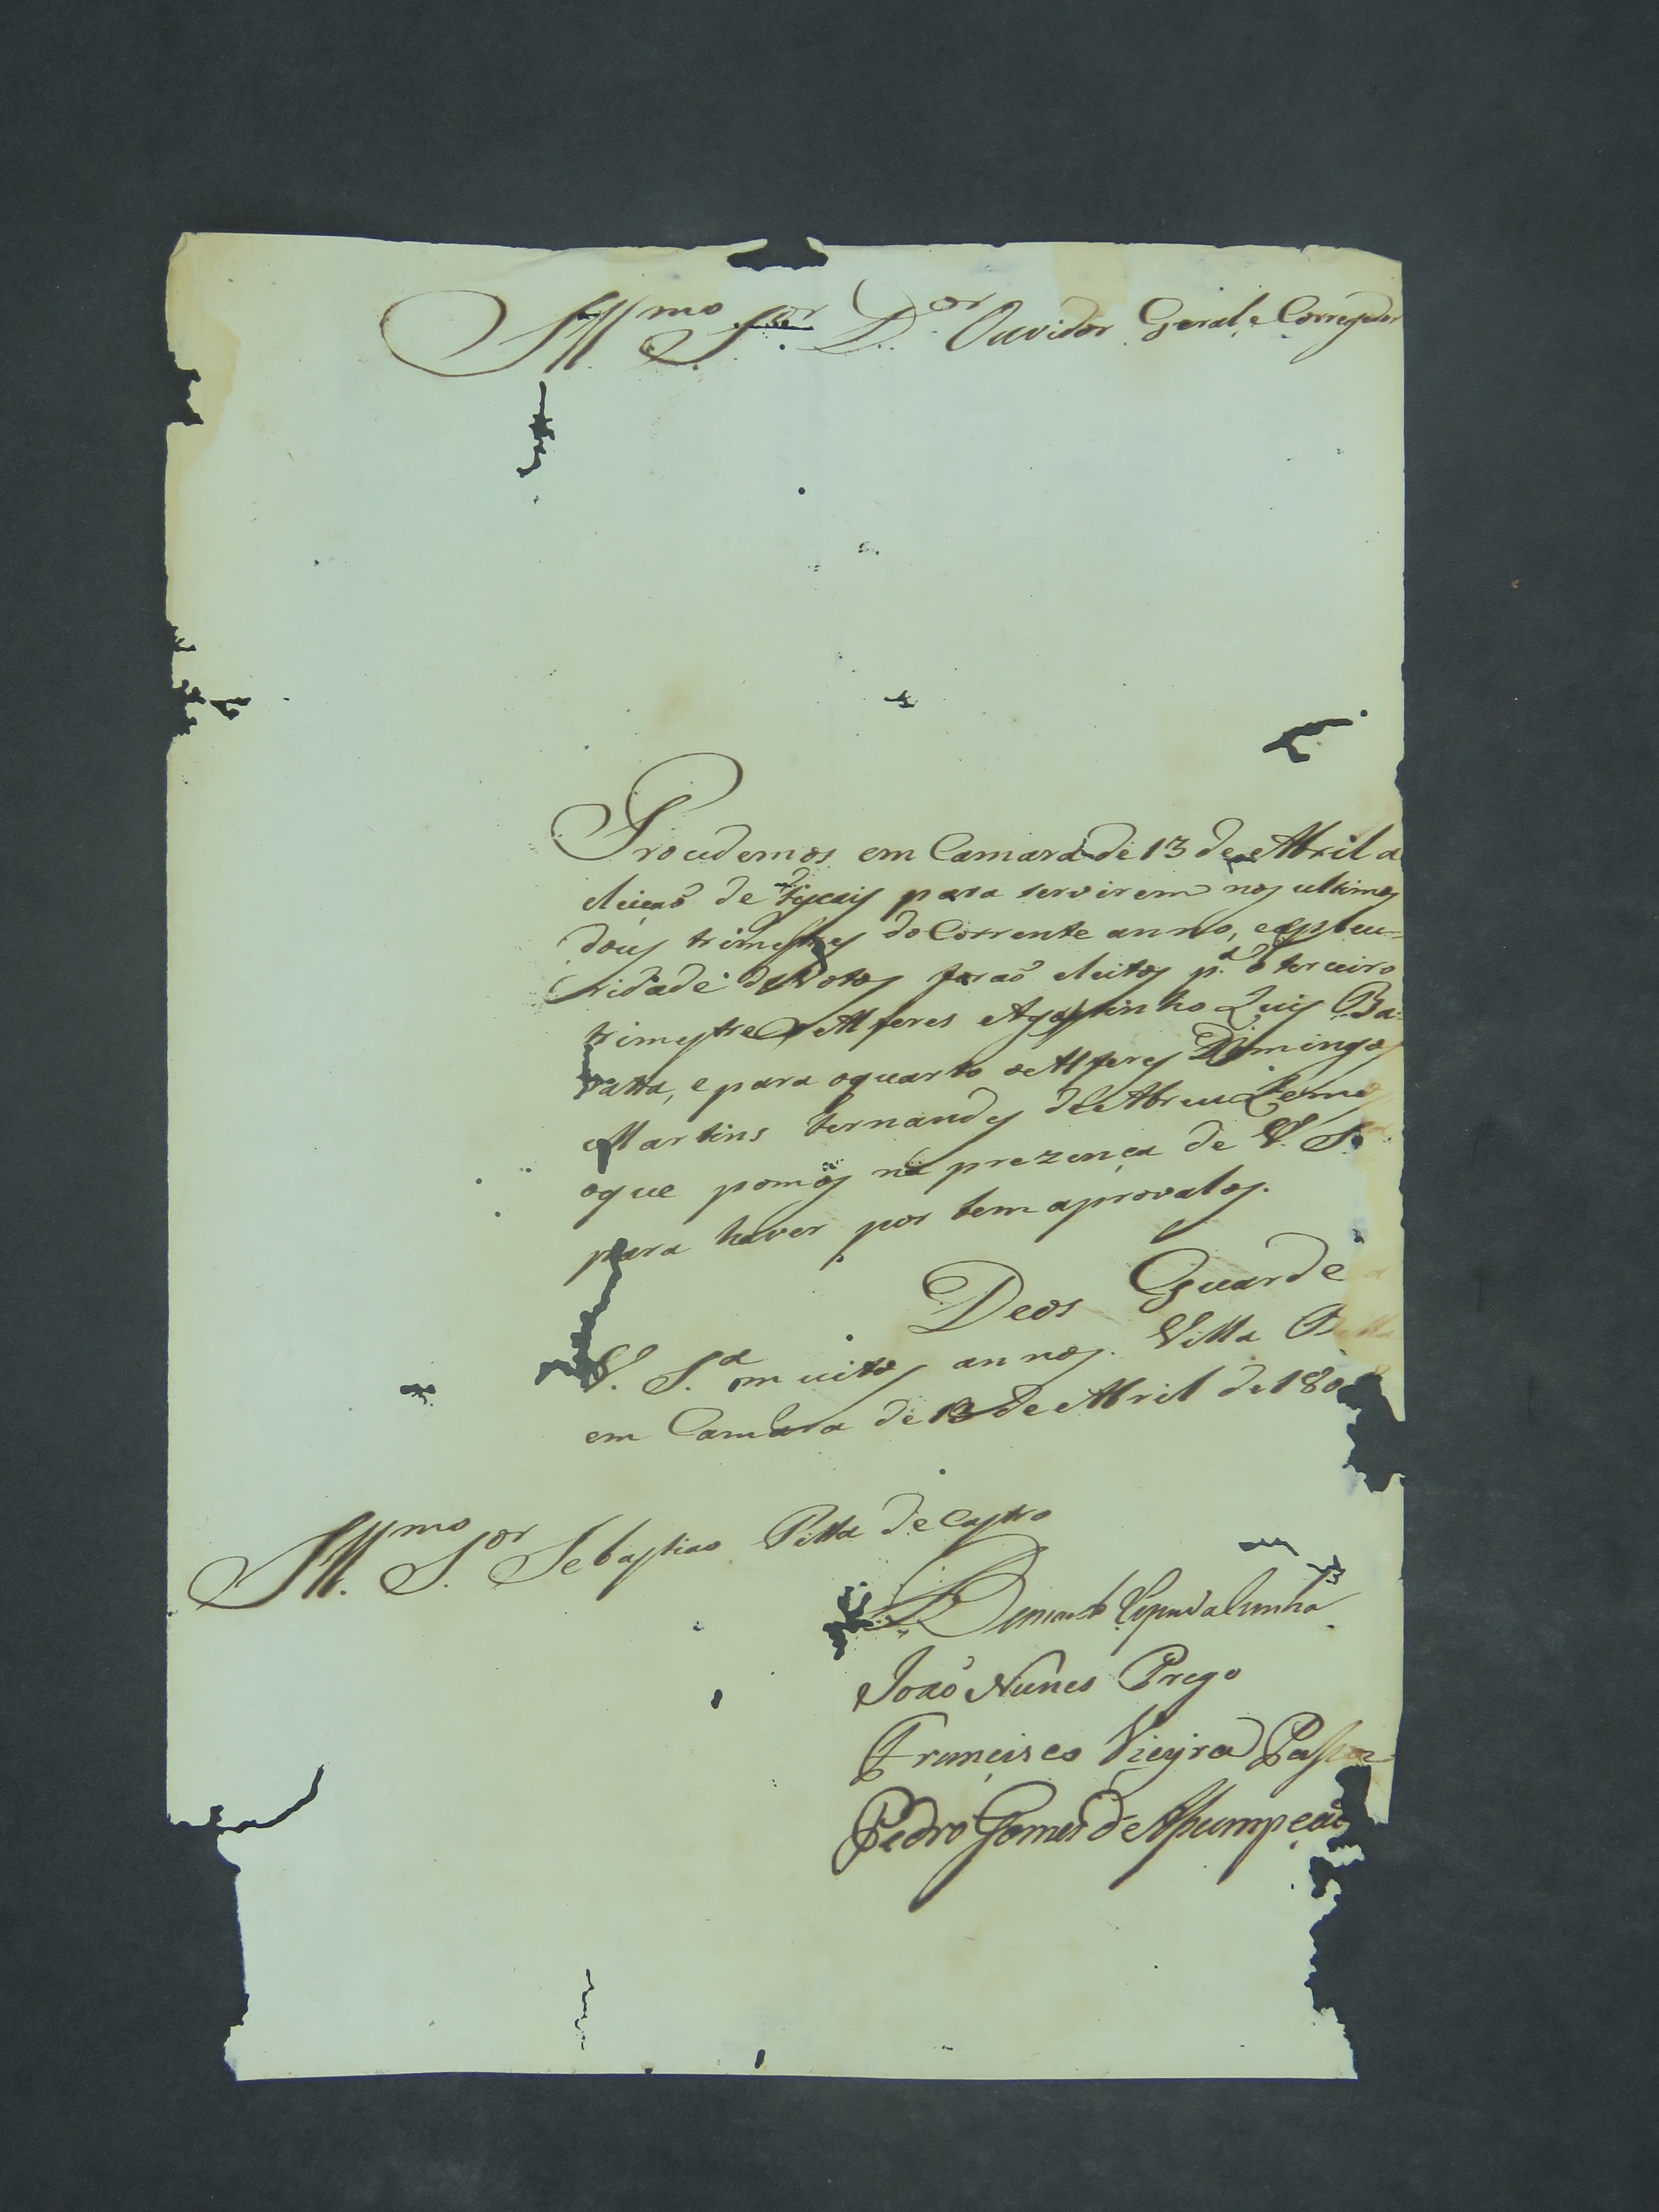 Illmo. Sor. Dor. Ouvidor Geral, e Corregedor
Procedemos em Camara de 13 de Abril a
eleiçaõ de para servirem nos ultimos
dous trimestres do Corrente anno, e aplu-
ridade de Votos foraõ eleitos p.a o terceiro
trimestre o Alferes Agostinho Luis Ba-
ratta, e para oquarto o Alferes Domingos
Martins Fernandes de Abreu Leme,
oque pomos na prezença de V. S.a
para haver por bem aprovalos.
Deos Guarde a
V. S.a muitos annos. Villa Bella
em Camara de 13 de Abril de 180
Illmo. Sor. Sebastiao Pitta de Castro
da Cunha
Joaõ Nunes Prego
Francisco Vieyra
Pedro Gomes de Assumpçaõ